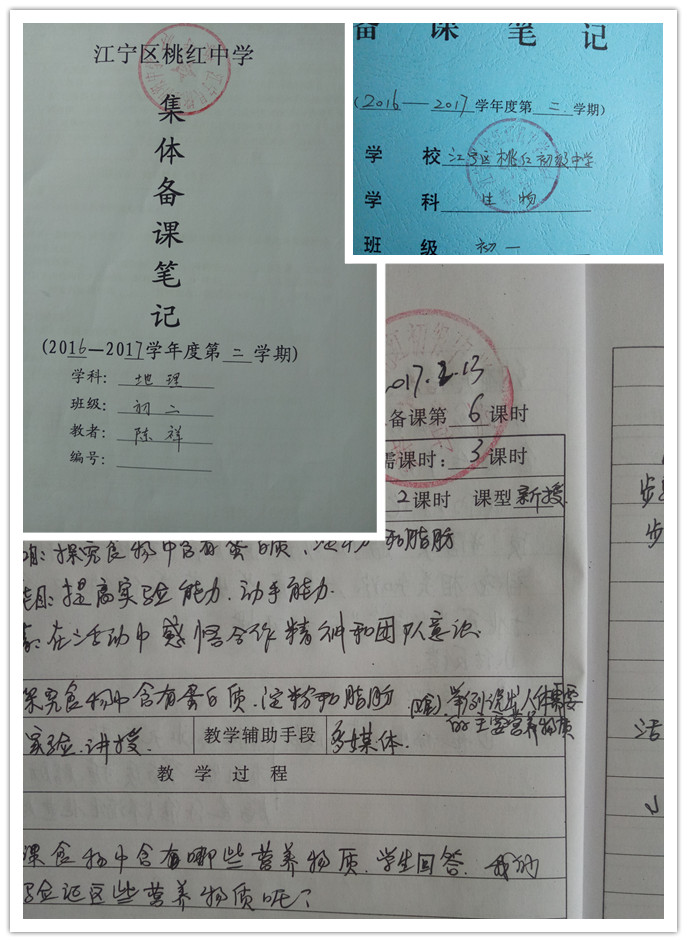 江宁区桃红中学
集
体
备
课
笔
记
(2016—2017学年度第二学期)
学科：地理
班级：初二
教者：陈祥
编号：
备课笔记
(2016—2017学年度第二学期)
学校 江宁区桃红初级中学
学科 生物
班级 初一
2017.2.13
备课第 6 课时
需课时：3 课时
2 课时 课型 新授
探究食物中含有蛋白质、淀粉和脂肪
提高实验能力.动手能力.
在活动中感悟合作精神和团队意识.
探究食物中含有蛋白质、淀粉和脂肪 举例说出人体需要
的主要营养物质
实验.讲授. 教学辅助手段 多媒体.
教 学 过 程
食物中含有哪些营养物质.学生回答. 我们
验证这些营养物质呢？
步
步
活